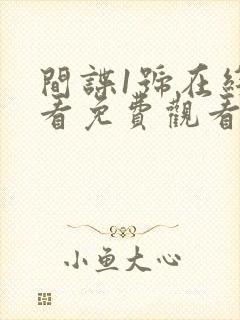 間諜1號在線
看免費觀看
小鱼大心